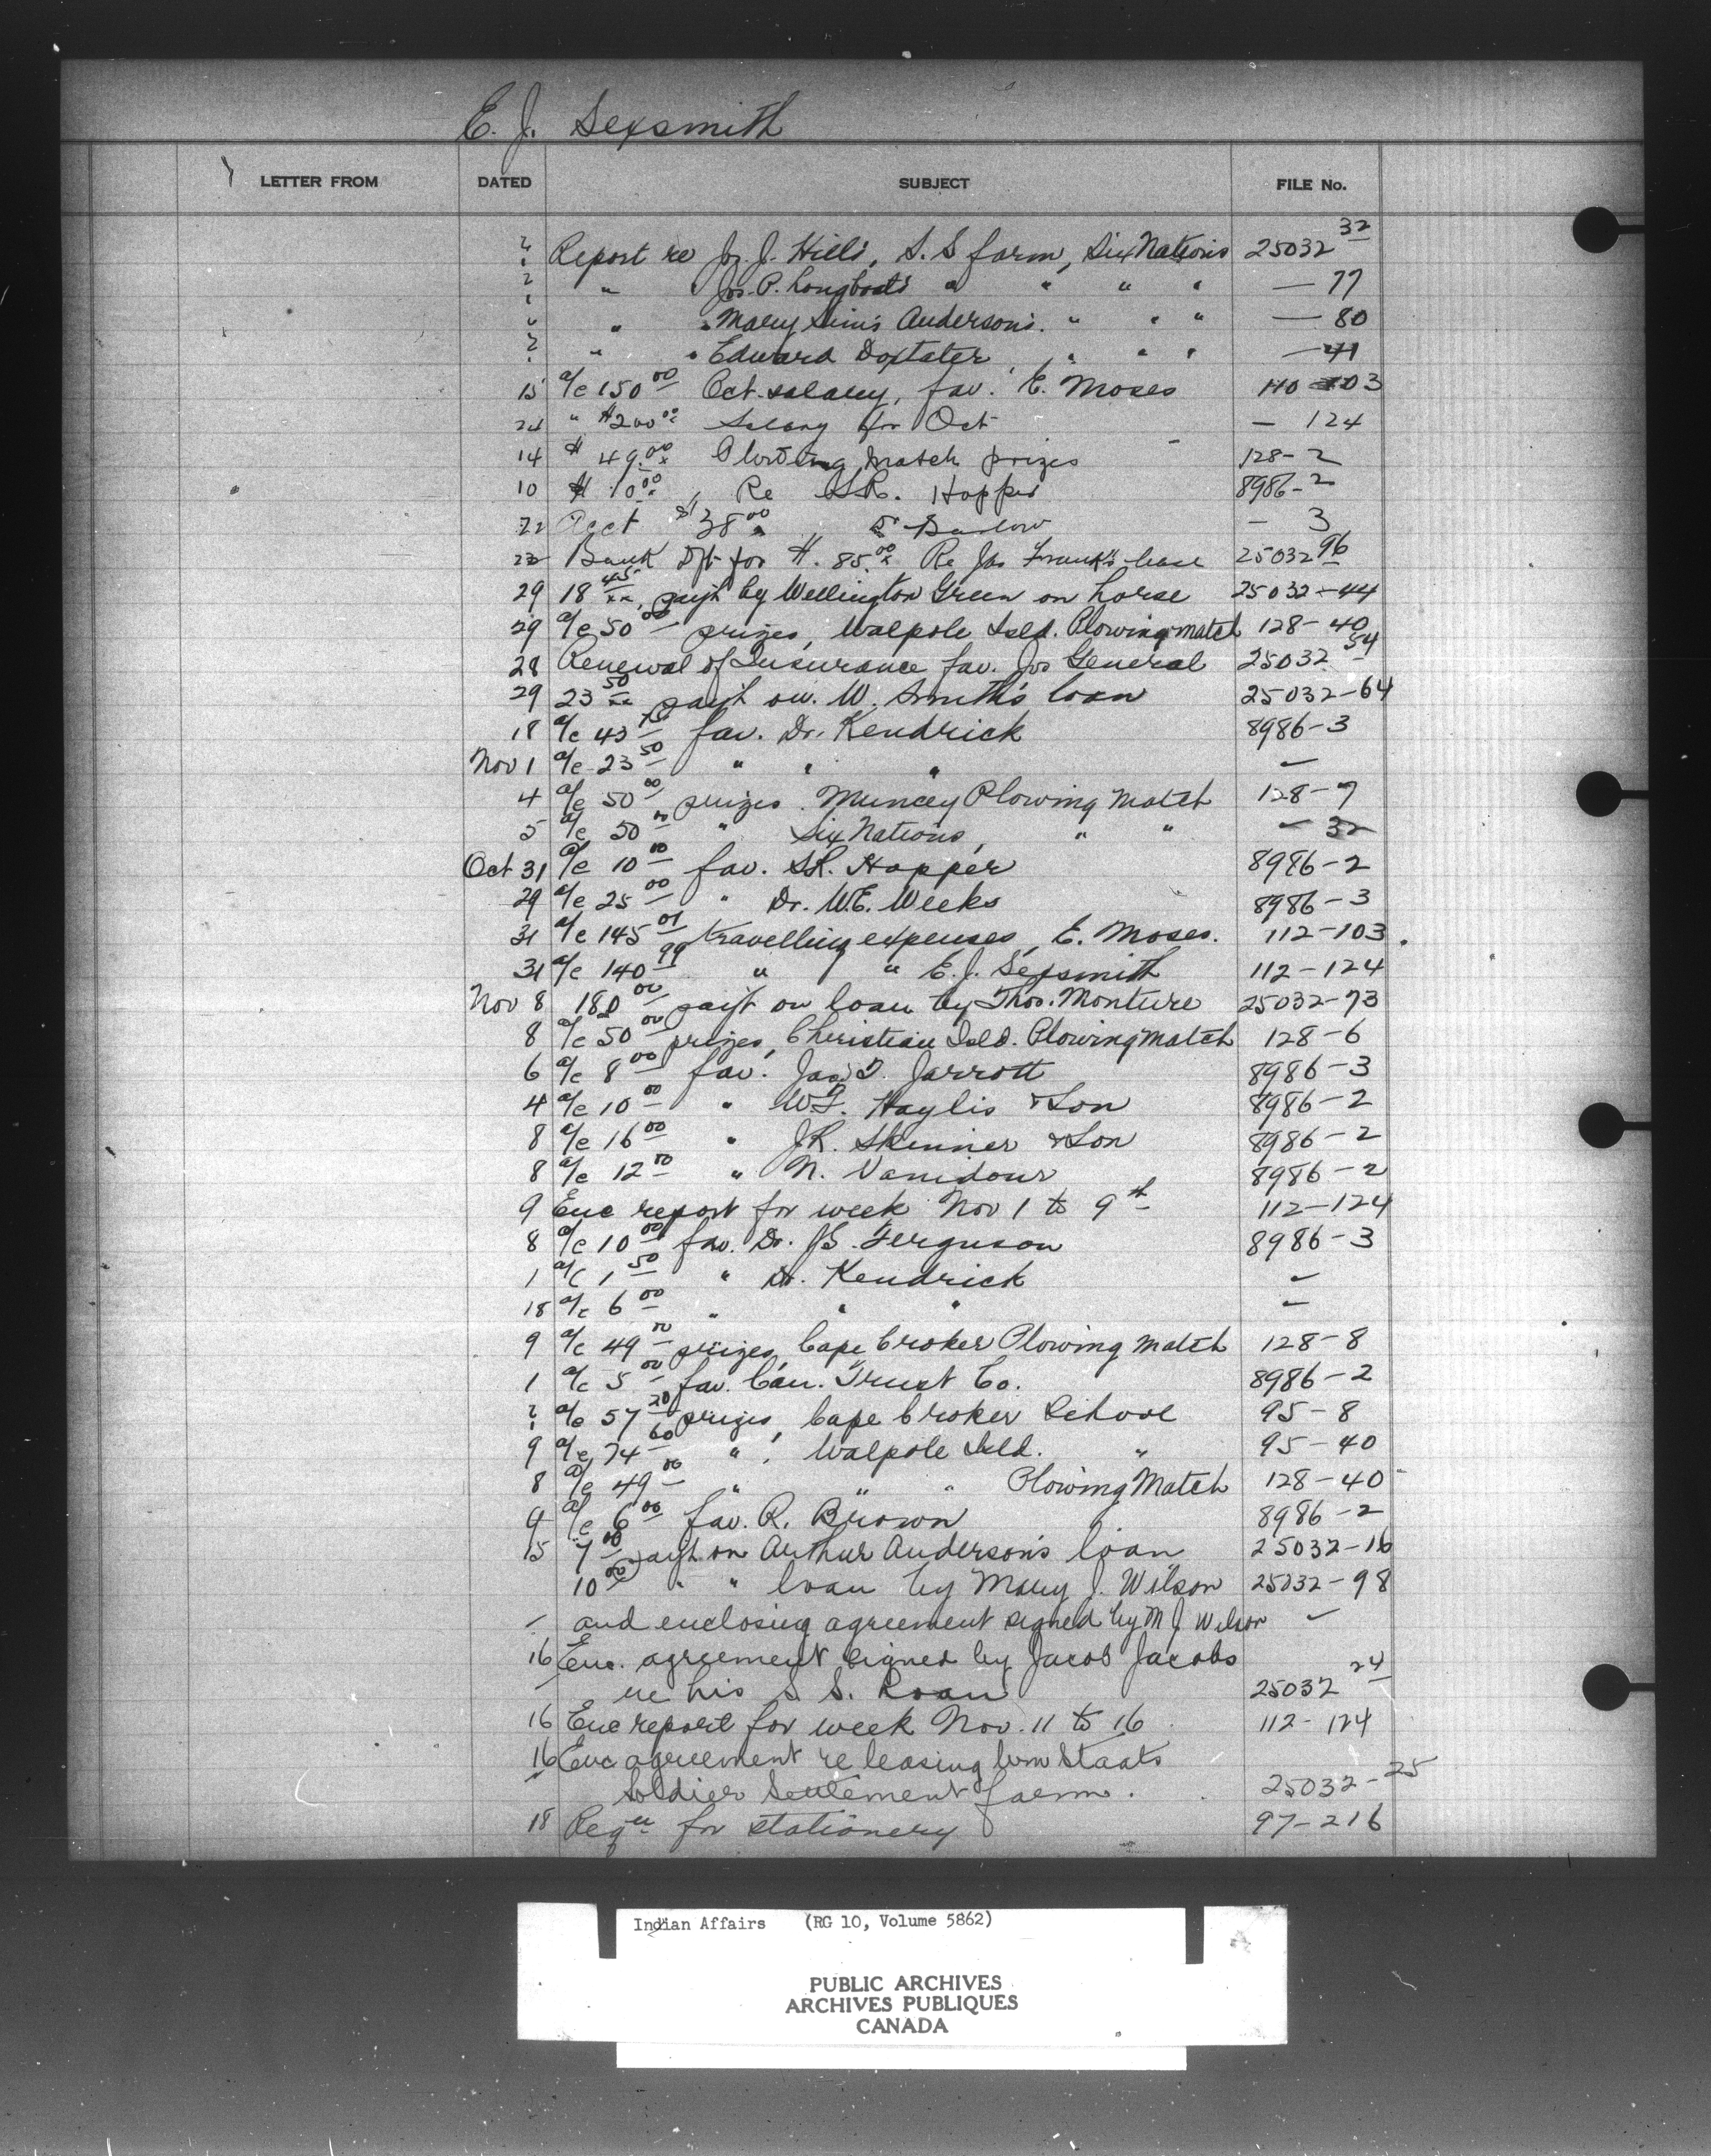 E. J. Sexsmith
LETTER FROM DATED SUBJECT FILE No.
? Report re Jos. J. Hill's, S. S farm, Six Nations 25032 32
? " Jos. P. Longboat's " " " " — 77
? " " Mary Sim's Anderson's. " " " — 80
? " " Edward Doxtater, " " " — 41
15 a/c 150 00 Oct. salary, fav. E. Moses 110 103
24 " $200 00 Salary for Oct — 124
14 $ 49 00 Plowing match prizes 128-2
10 $ 10 00, Re S.R. Hopper 8986-2
22 Acct $38 00 Barlow — 3
23 Bank Dft for $. 85 00 Re Jas Frank's lease 25032 96
29 18 45, pay't by Wellington Green on horse 25032-44
29 a/c 50 00 prizes, Walpole Isld. Plowing match 128-40
28 Renewal of Insurance fav. Jos General 25032 54
29 23 50 pay't on W. Smith's loan 25032-64
18 a/c 43 fav. Dr. Kendrick 8986-3
Nov 1 a/c 23 50 " " " —
4 a/c 50 00 prizes. Muncey Plowing Match 128-7
5 a/c 50 00 " Six Nations, " " — 32
Oct 31 a/c 10 00 fav. S.R. Hopper 8986-2
29 a/c 25 00 " Dr. W.E. Weeks 8986-3
31 a/c 145 01 travelling expenses, E. Moses. 112-103.
31 a/c 140 99 " " E. J. Sexsmith 112-124
Nov 8 180 00 pay't on loan by Thos. Monture 25032-73
8 a/c 50 00 prizes, Christian Isld. Plowing Match 128-6
6 a/c 8 00 fav. Jas. D. Jarrott 8986-3
4 a/c 10 00 " Haylis & Son 8986-2
8 a/c 16 00 " J.R. Skinner & Son 8986-2
8 a/c 12 00 " N. Vanidour 8986-2
9 Enc report for week Nov 1 to 9th 112-124
8 a/c 10 00 fav. Dr. J.S. Ferguson 8986-3
1 a/c 1 50 " Dr. Kendrick —
18 a/c 6 00 " " " —
9 a/c 49 00 prizes, Cape Croker Plowing Match 128-8
1 a/c 5 00 fav. Can. Trust Co. 8986-2
? a/c 57 20 prizes, Cape Croker School 95-8
9 a/c 74 60 " , Walpole Isld. " 95-40
8 a/c 49 00 " " " Plowing Match 128-40
9 a/c 6 00 fav. R. Brown 8986-2
15 7 00 pay't on Arthur Anderson's loan 25032-16
10 00 " " loan by Mary J. Wilson 25032-98
and enclosing agreement signed by M J Wilson
16 Enc. agreement signed by Jacob Jacobs
re his S S. Loan 25032 24
16 Enc report for week Nov. 11 to 16 112-124
16 Enc agreement re leasing Wm Staats
Soldier Settlement farm. 25032-25
18 Reqn for stationery 97-216
Indian Affairs (RG 10, Volume 5862)
PUBLIC ARCHIVES
ARCHIVES PUBLIQUES
CANADA